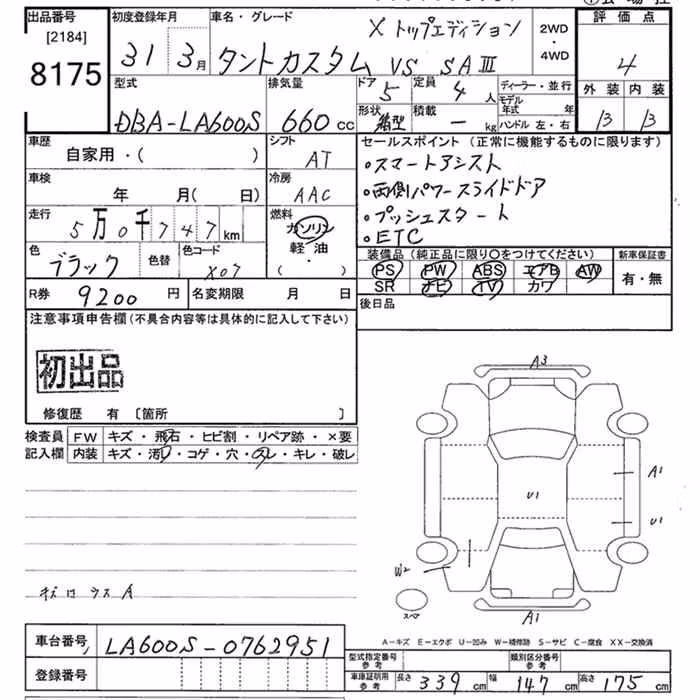 出品番号 [2184] 8175
初度登録年月 31 3月
車名・グレード X トップエディション
タントカスタム VS SAⅢ
2WD・4WD
評価点 4
外装 内装
B B
型式 DBA-LA600S
排気量 660 cc
ドア 5 定員 4 人
形状 箱型 積載 - kg
ディーラー・並行
モデル年式 年
ハンドル 左・右
車歴 自家用・( )
シフト AT
セールスポイント (正常に機能するものに限ります)
・スマートアシスト
・両側パワースライドドア
・プッシュスタート
・ETC
車検 年 月( 日)
冷房 AAC
走行 5万0千747km
燃料 ガソリン
軽油
( ・ )
色 ブラック 色替 色コード X07
装備品 (純正品に限り〇をつけてください) 新車保証書
PS PW ABS エアB AW
SR ナビ TV カワ
有・無
R券 9200円 名変期限 月 日
後日品
注意事項申告欄 (不具合内容等は具体的に記入して下さい)
初出品
修復歴 有 〔箇所 〕
検査員記入欄 FW キズ・飛石・ヒビ割・リペア跡・×要
内装 キズ・汚レ・コゲ・穴・スレ・キレ・破レ
A3
A1
U1
U1
W2
スペア
A1
A-キズ E-エクボ U-凹み W-補修跡 S-サビ C-腐食 XX-交換済
車台番号 LA600S-0762951
登録番号
型式指定番号 参考 類別区分番号 参考
車庫証明用 参考 長さ 339 cm 幅 147 cm 高さ 175 cm